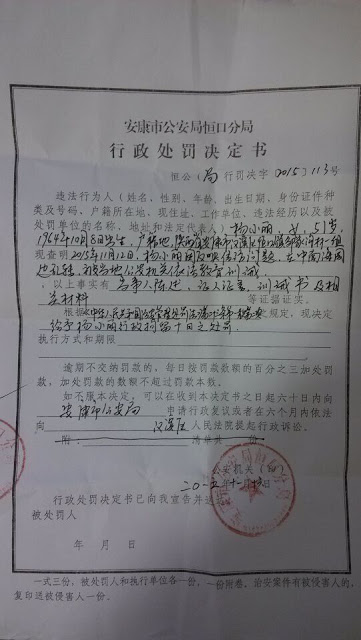 安康市公安局恒口分局
行政处罚决定书
恒公(局)行罚决字〔2015〕113号
违法行为人(姓名、性别、年龄、出生日期、身份证件种
类及号码、户籍所在地、现住址、工作单位、违法经历以及被
处罚单位的名称、地址和法定代表人)杨小丽,女,51岁,
1964年10月8日出生,户籍地,陕西省安康市汉滨区恒口镇
现查明2015年11月12日,杨小丽因反映征地问题,在中南海周
边扎转,被当地公安机关依法教育训诫。
以上事实有当事人陈述,证人证言,训诫书及相
关材料等证据证实。
根据《中华人民共和国治安管理处罚法》之规定,现决定
给予杨小丽行政拘留十日之处罚
执行方式和期限
逾期不交纳罚款的,每日按罚款数额的百分之三加处罚
款,加处罚款的数额不超过罚款本数。
如不服本决定,可以在收到本决定书之日起六十日内向
安康市公安局申请行政复议或者在六个月内依法
向汉滨区人民法院提起行政诉讼。
附:清单 份
公安机关(印)
二〇一五年十一月 日
行政处罚决定书已向我宣告并送
被处罚人
年 月 日
一式三份,被处罚人和执行单位各一份,一份附卷。治安案件有被侵害人的,
复印送被侵害人一份。